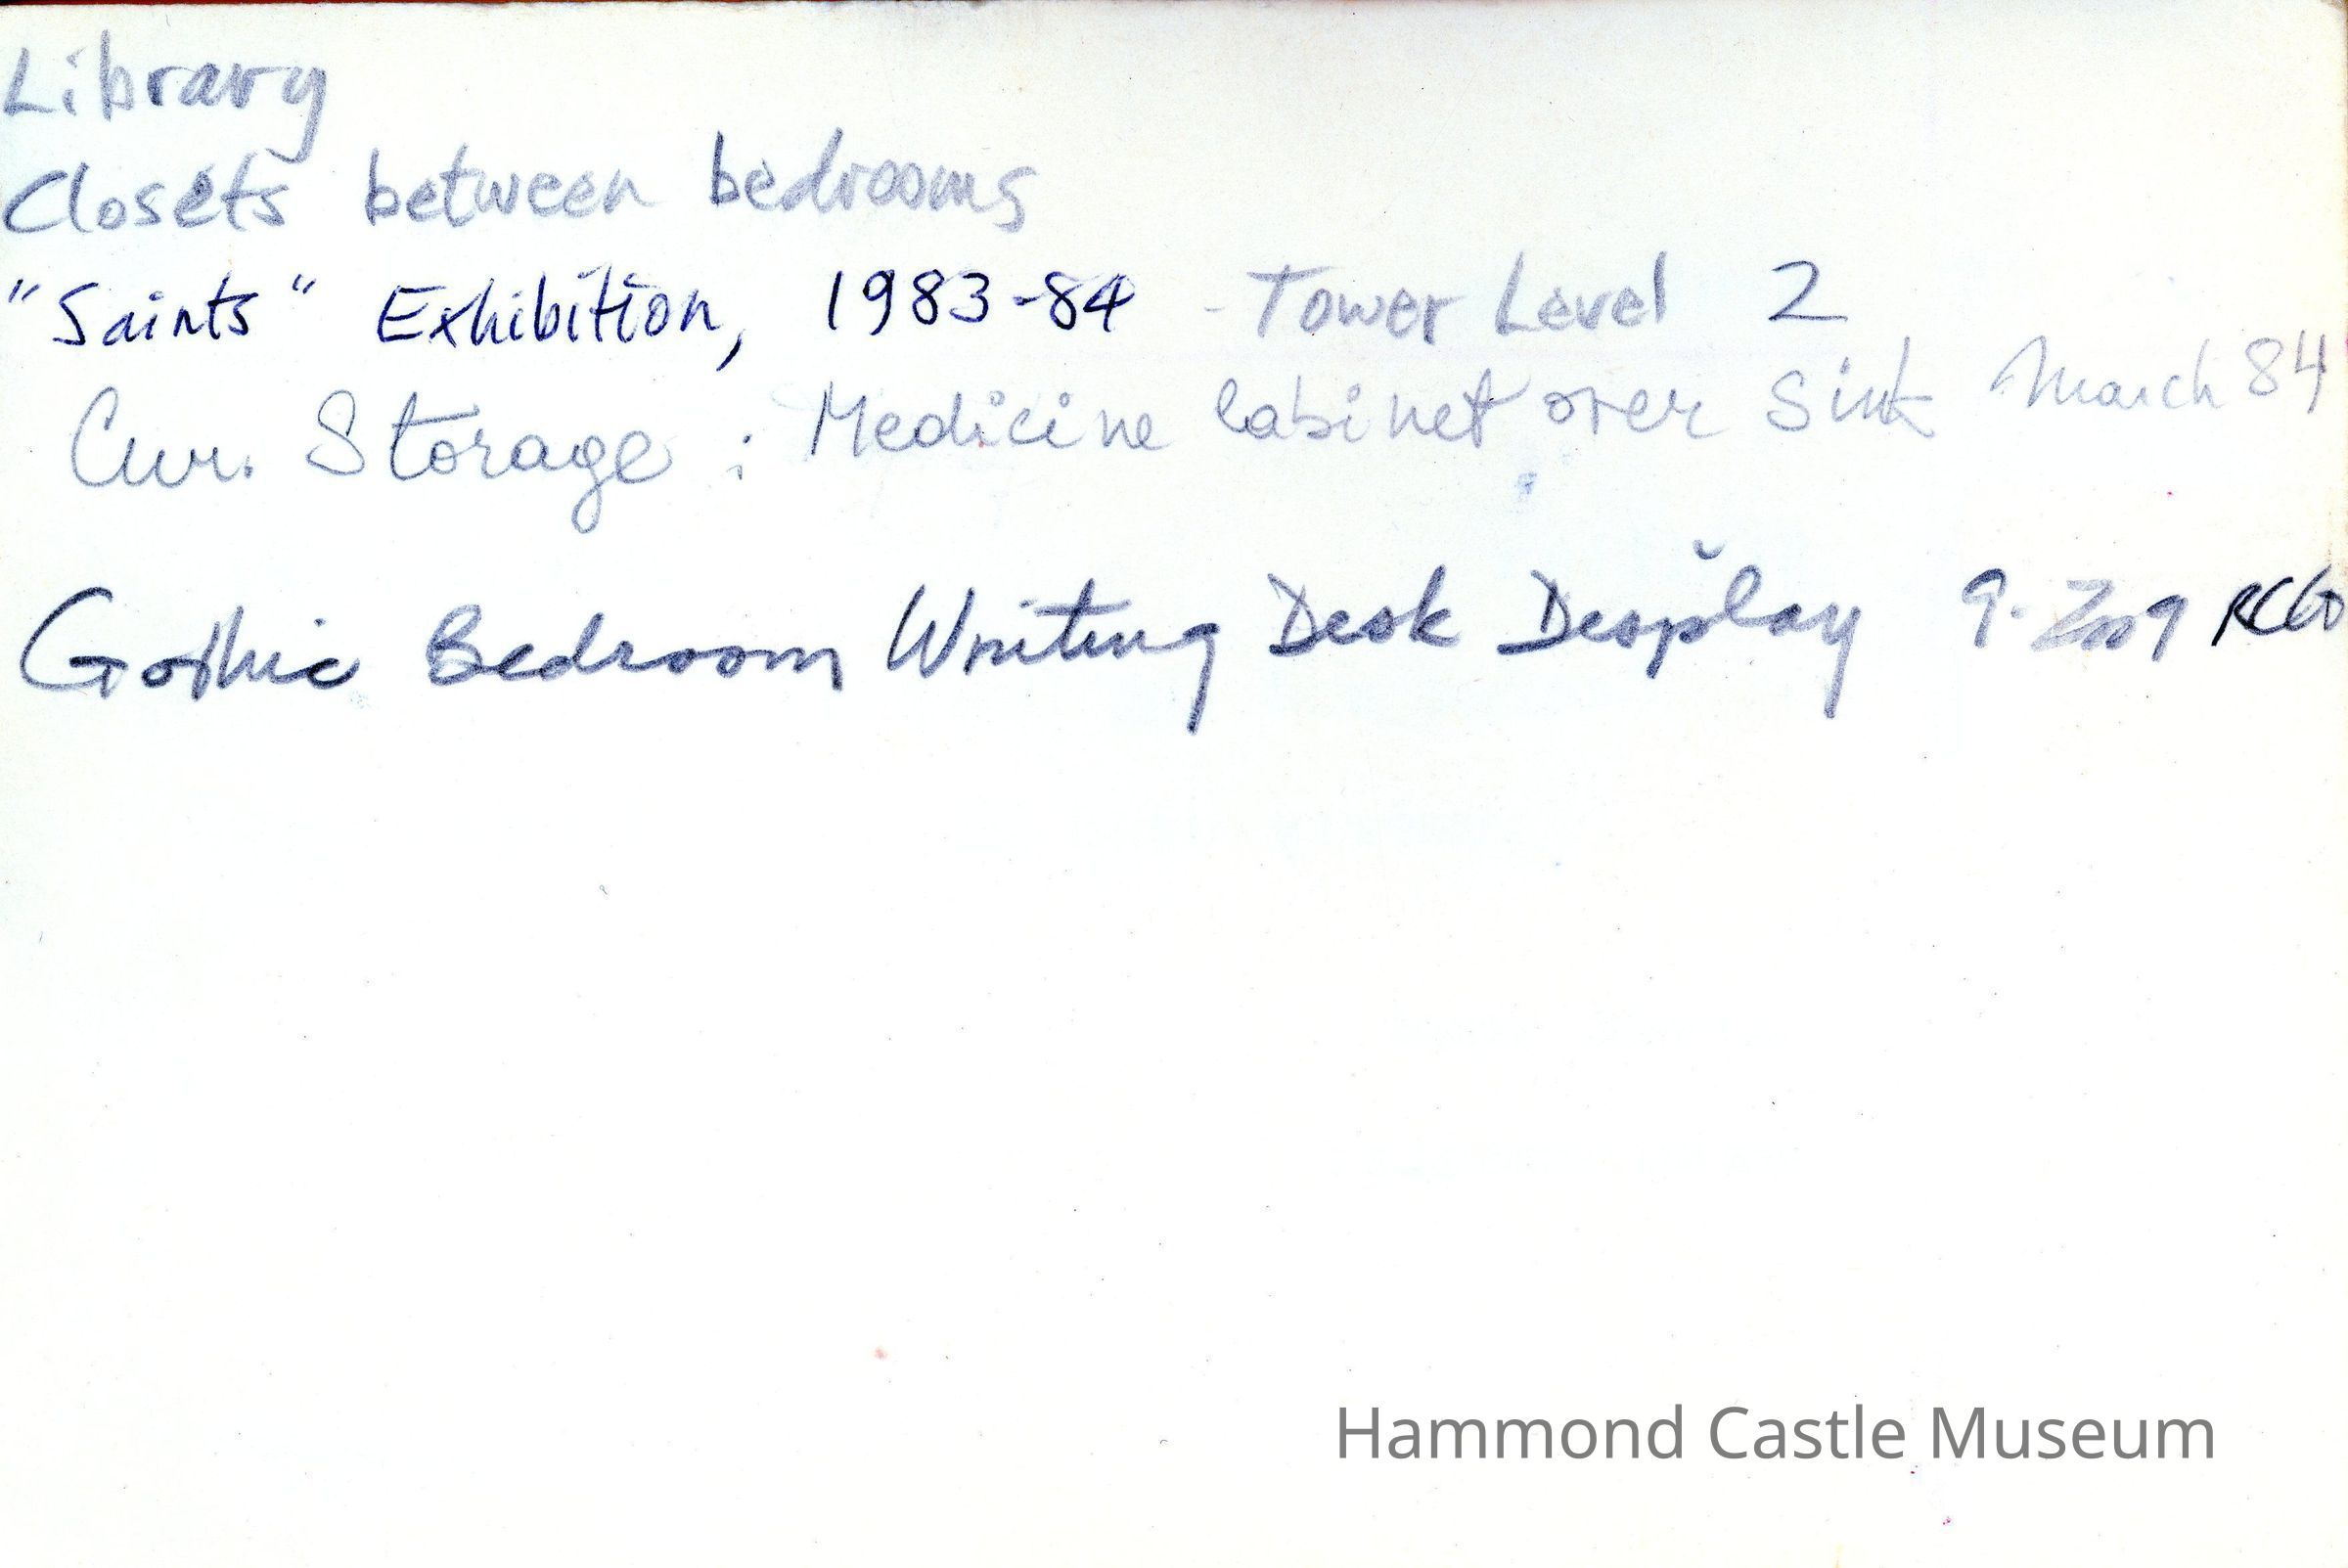 Library
Closets between bedrooms
"Saints" Exhibition, 1983-84 - Tower Level 2
Cur. Storage : Medicine Cabinet over Sink March 84
Gothic Bedroom Writing Desk Display 9-2009
Hammond Castle Museum